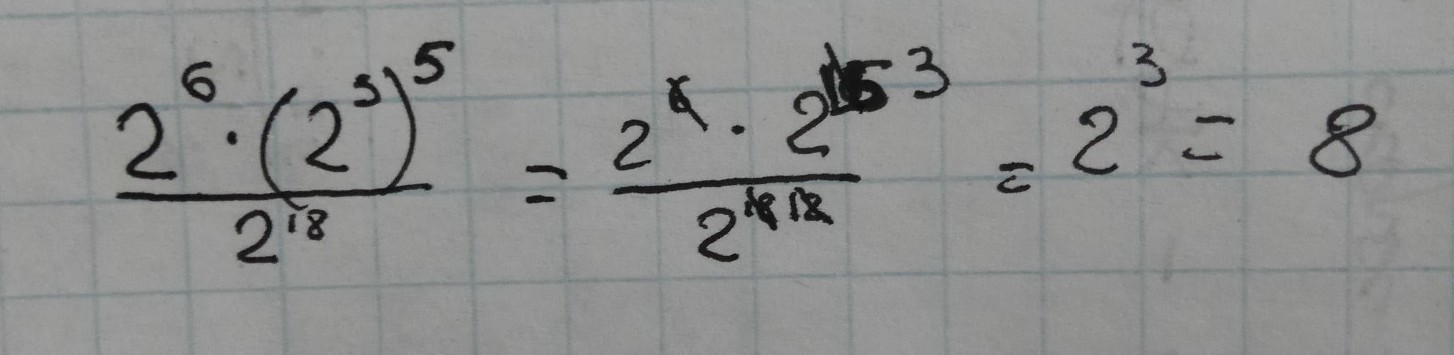 2^6 · (2^3)^5 / 2^18 = 2^6 · 2^15 3 / 2^18 12 = 2^3 = 8